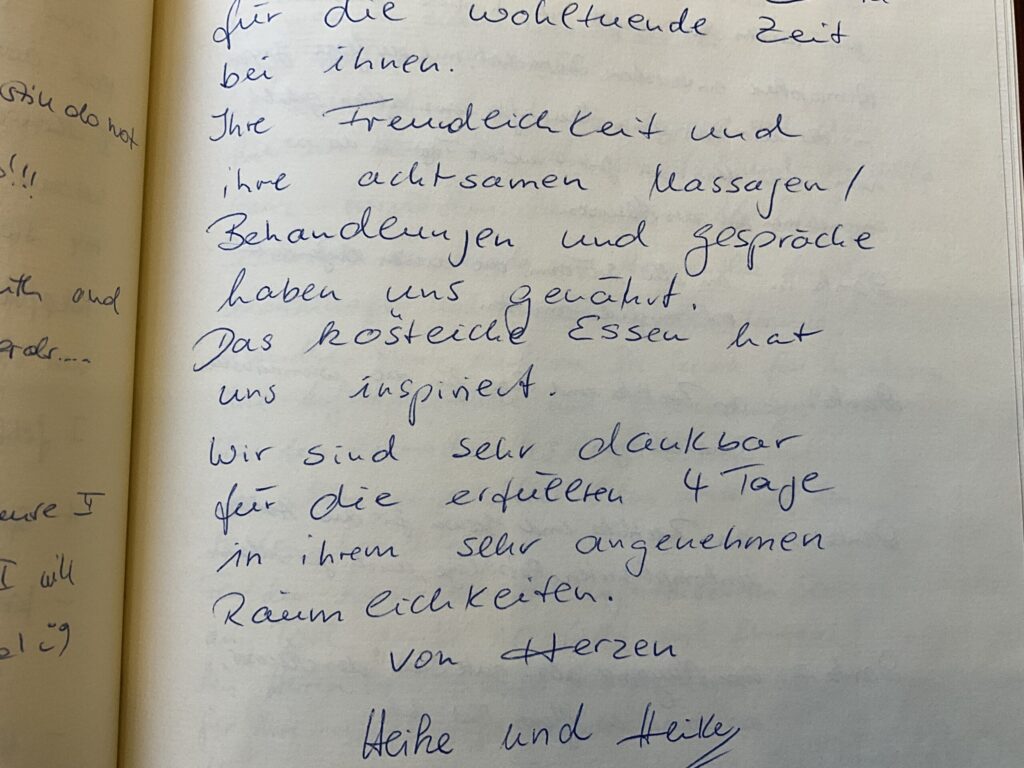 stin do not
!!!
and
....
I will
für die wohltuende Zeit
bei ihnen.
Ihre Freundlichkeit und
ihre achtsamen Massagen /
Behandlungen und gespräche
haben uns genährt.
Das köstliche Essen hat
uns inspiriert.
Wir sind sehr dankbar
für die erfüllten 4 Tage
in ihrem sehr angenehmen
Räumlichkeiten.
von Herzen
Heike und Heike